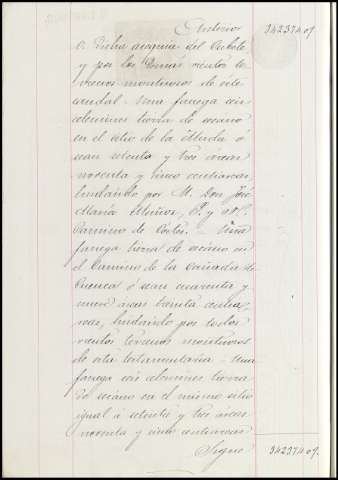 Anterior 34237409
á dicha acequia del Cubete
y por los demás vientos te
rrenos montuosos de este
caudal. Una fanega seis
celemines tierra de secano
en el sitio de la ó
sean setenta y tres áreas
noventa y cinco centiareas
lindando por M. Don José
María Muñoz, P. y N.
Camino de Cortes. Una
fanega tierra de secano en
el Camino de la Cañada de
Cuenca ó sean cuarenta y
nueve áreas treinta centia,
reas, lindando por todos
vientos terrenos montuosos
de esta testamentaria. Una
fanega seis celemines tierra
de secano en el mismo sitio
igual á setenta y tres áreas
noventa y cinco centiareas
Sigue 34237409.